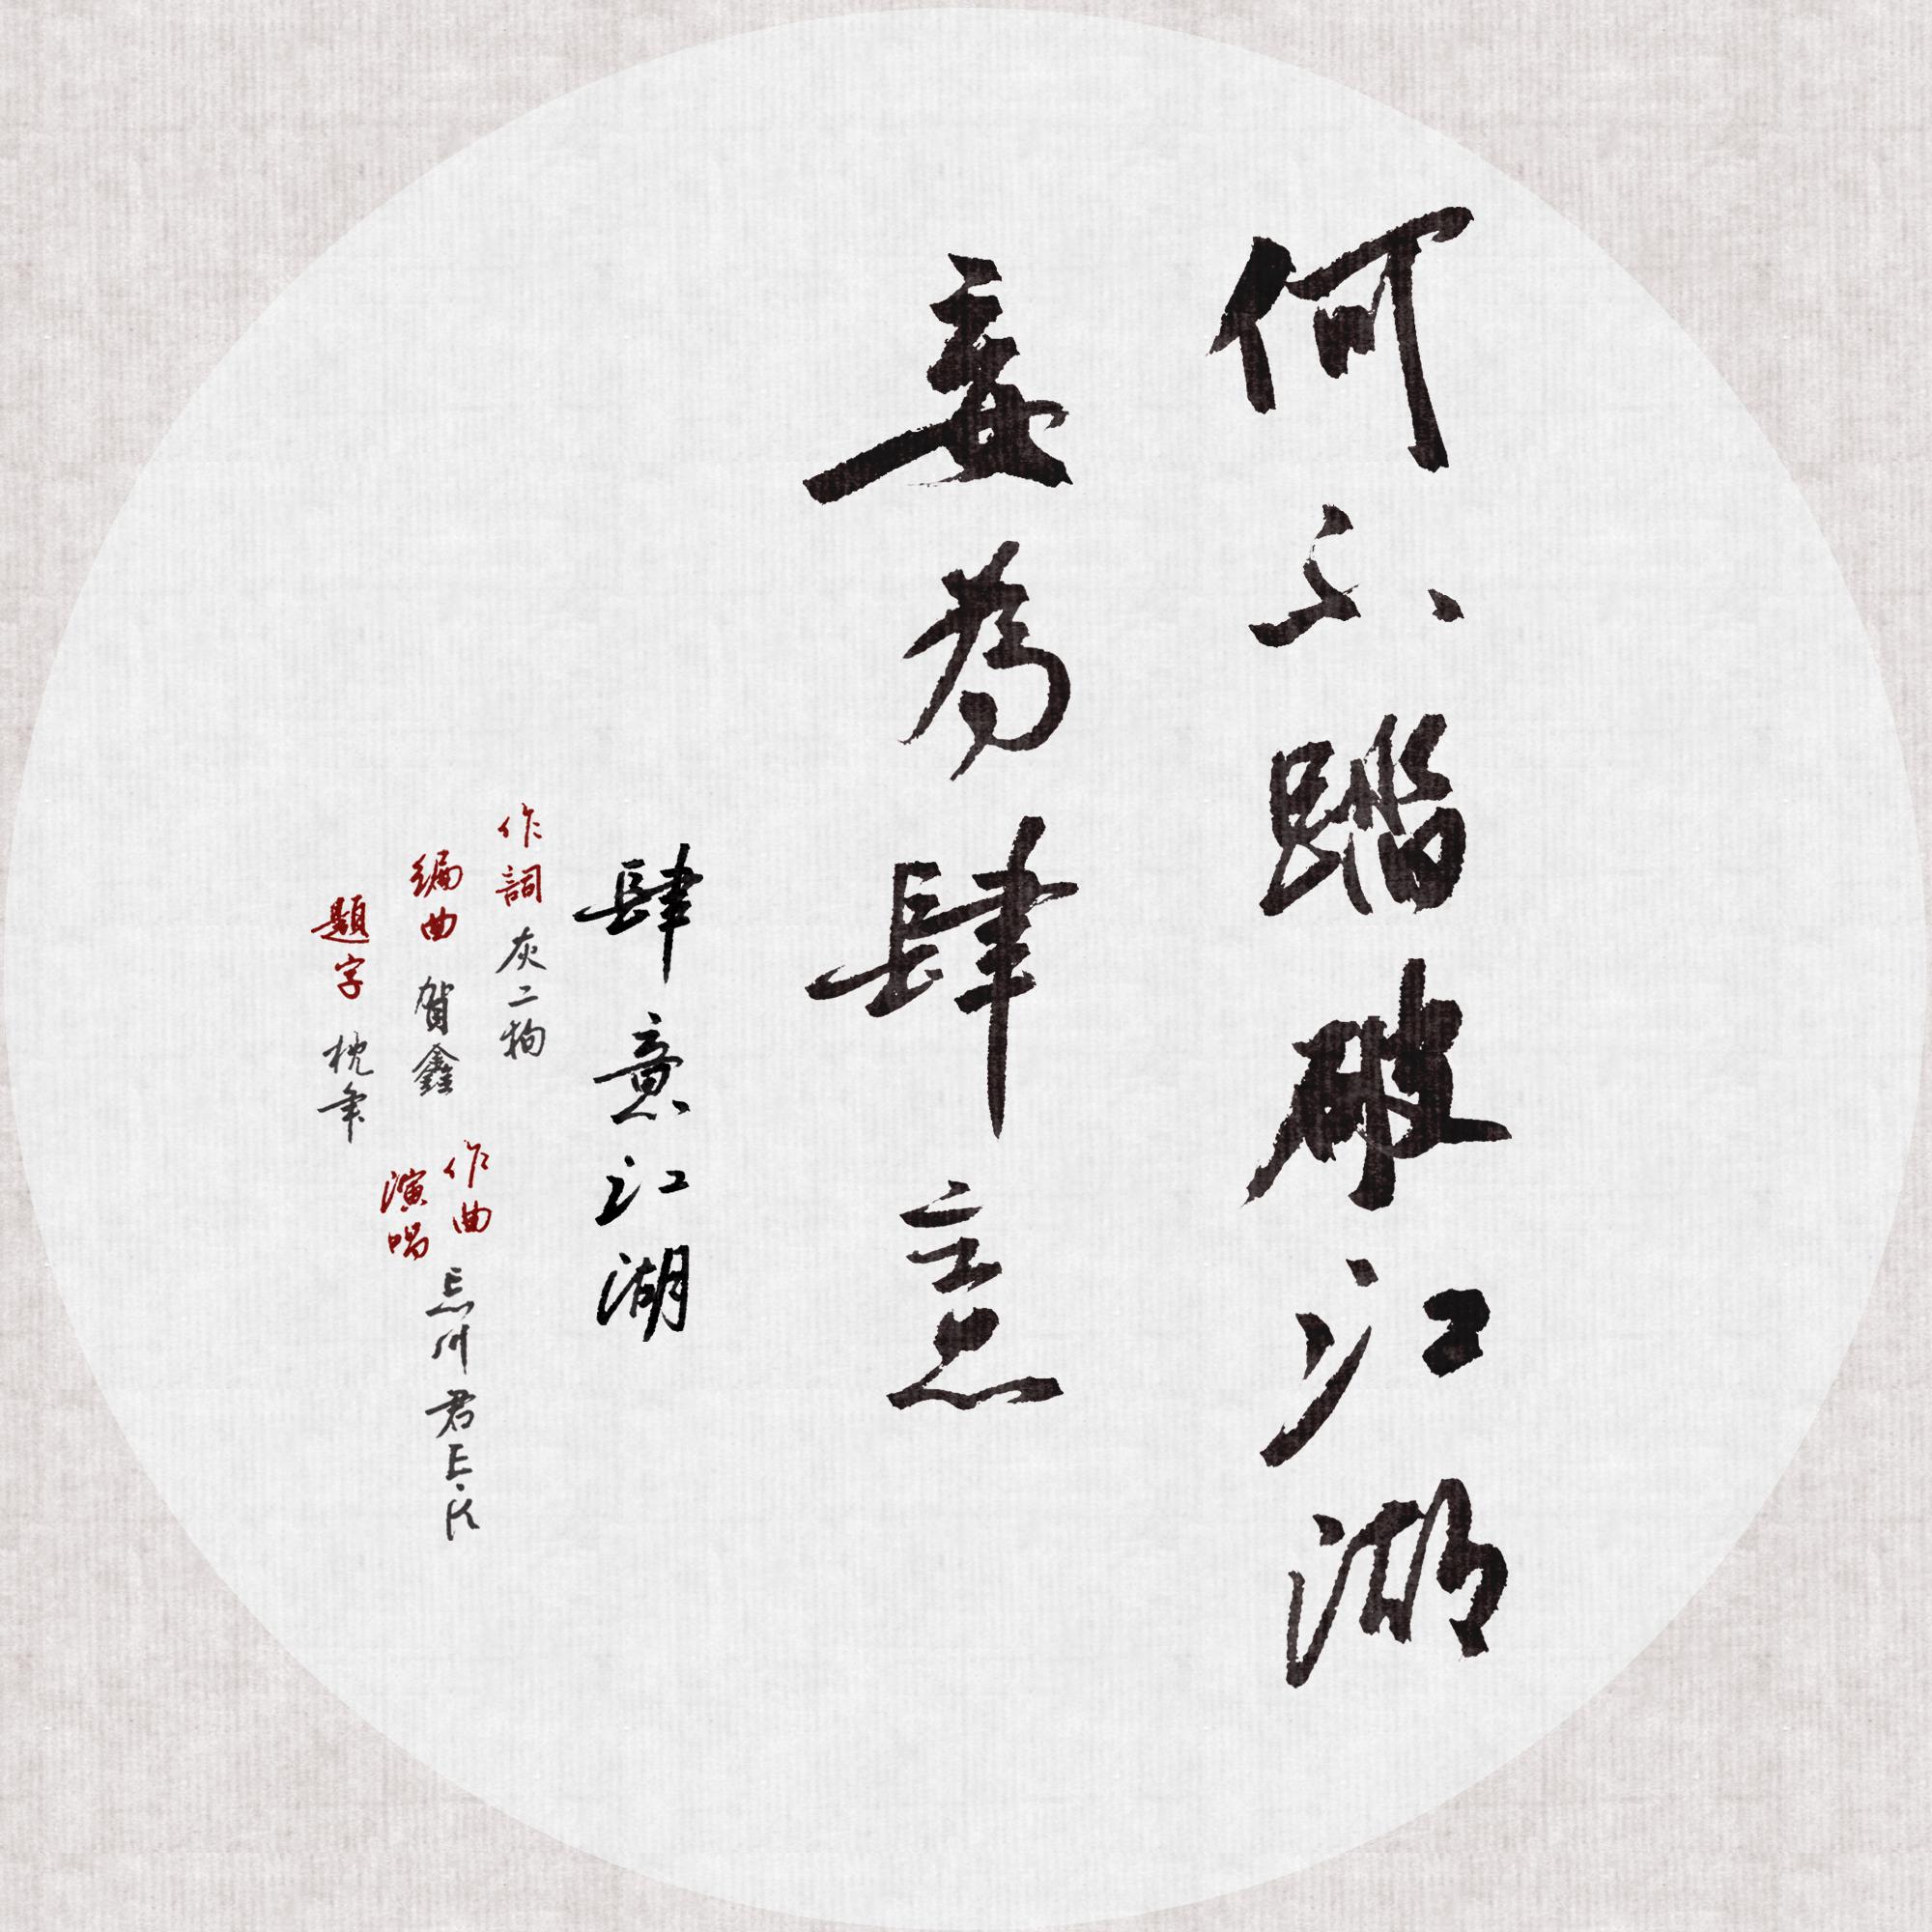 何不踏破江湖
妄为肆意
肆意江湖
作詞 灰二狗
作曲
编曲 贺鑫
演唱
忘川君
題字 枕年